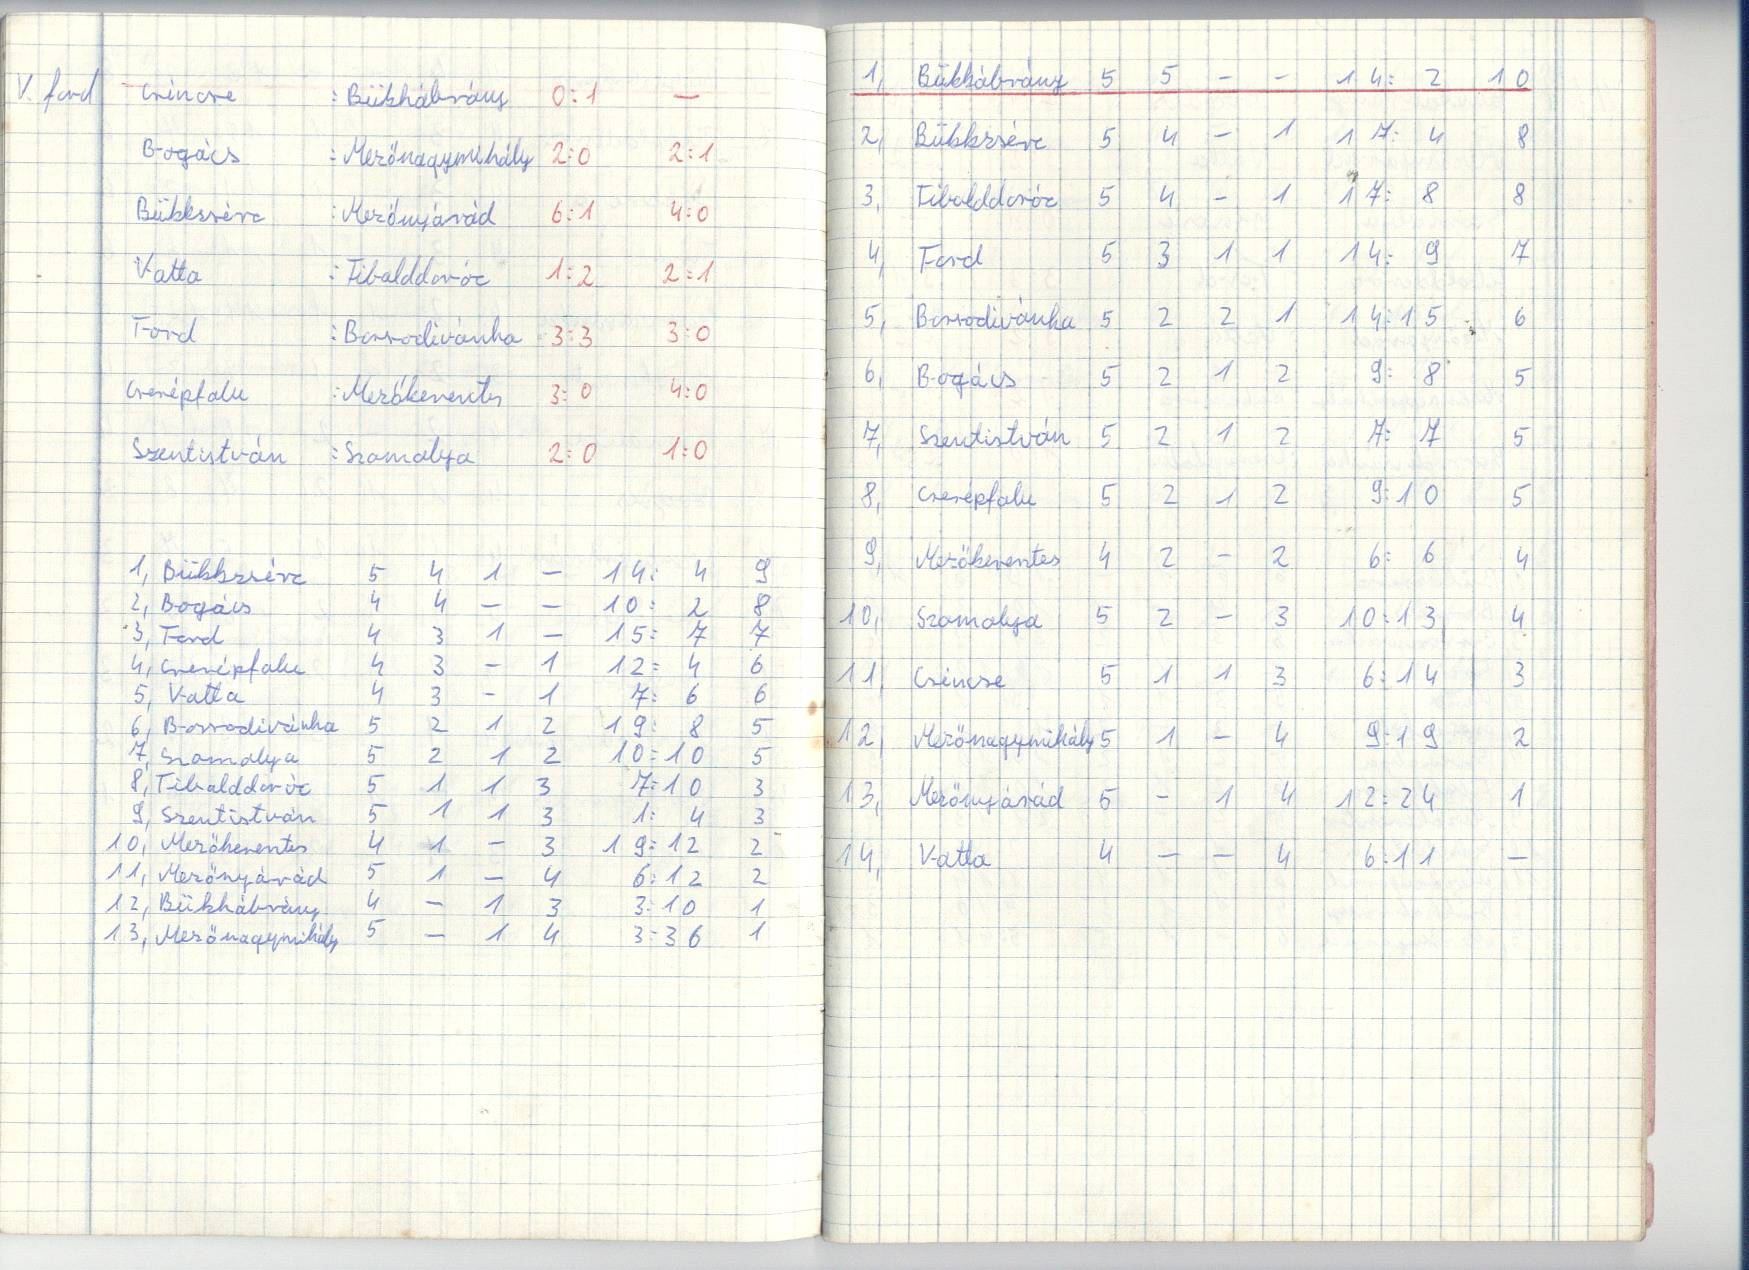 V. ford Csincse : Bükkábrány 0:1 —
Bogács : Mezőnagymihály 2:0 2:1
Bükkzsérc : Mezőnyárád 6:1 4:0
Vatta : Tibolddaróc 1:2 2:1
Tard : Borsodivánka 3:3 3:0
Cserépfalu : Mezőkeresztes 3:0 4:0
Szentistván : Szomolya 2:0 1:0
1, Bükkzsérc 5 4 1 — 14: 4 9
2, Bogács 4 4 — — 10: 2 8
3, Tard 4 3 1 — 15: 7 7
4, Cserépfalu 4 3 — 1 12: 4 6
5, Vatta 4 3 — 1 7: 6 6
6, Borsodivánka 5 2 1 2 19: 8 5
7, Szomolya 5 2 1 2 10:10 5
8, Tibolddaróc 5 1 1 3 7:10 3
9, Szentistván 5 1 1 3 1: 4 3
10, Mezőkeresztes 4 1 — 3 19:12 2
11, Mezőnyárád 5 1 — 4 6:12 2
12, Bükkábrány 4 — 1 3 3:10 1
13, Mezőnagymihály 5 — 1 4 3:36 1
1, Bükkábrány 5 5 — — 14: 2 10
2, Bükkzsérc 5 4 — 1 17: 4 8
3, Tibolddaróc 5 4 — 1 17: 8 8
4, Tard 5 3 1 1 14: 9 7
5, Borsodivánka 5 2 2 1 14:15 6
6, Bogács 5 2 1 2 9: 8 5
7, Szentistván 5 2 1 2 7: 7 5
8, Cserépfalu 5 2 1 2 9:10 5
9, Mezőkeresztes 4 2 — 2 6: 6 4
10, Szomolya 5 2 — 3 10:13 4
11, Csincse 5 1 1 3 6:14 3
12, Mezőnagymihály 5 1 — 4 9:19 2
13, Mezőnyárád 5 — 1 4 12:24 1
14, Vatta 4 — — 4 6:11 —